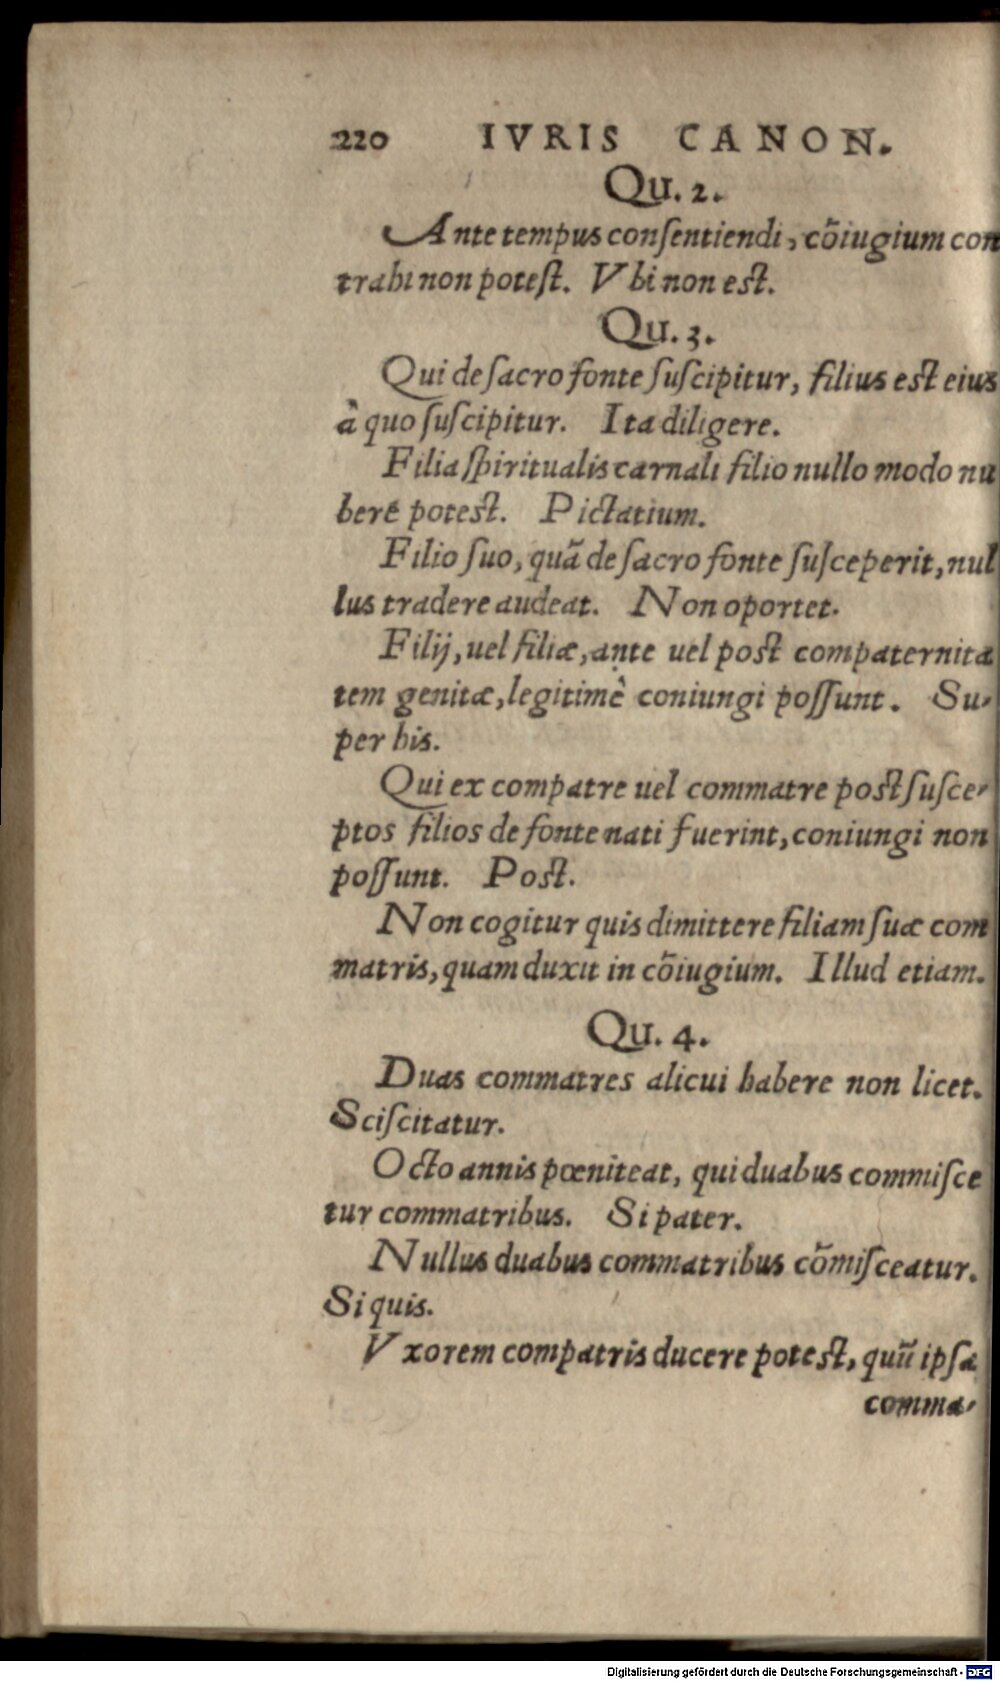 220 IVRIS CANON.
Qu. 2.
Ante tempus conſentiendi, cõiugium con
trahi non poteſt. Vbi non est.
Qu. 3.
Qui de ſacro fonte ſuſcipitur, filius est eius
à quo ſuſcipitur. Ita diligere.
Filia ſpiritualis carnali filio nullo modo nu
bere potest. Pictatium.
Filio ſuo, quã de ſacro fonte ſuſceperit, nul
lus tradere audeat. Non oportet.
Filij, uel filiæ, ante uel post compaternita
tem genitæ, legitimè coniungi poſſunt. Su-
per his.
Qui ex compatre uel commatre post ſuſce-
ptos filios de fonte nati fuerint, coniungi non
poſſunt. Post.
Non cogitur quis dimittere filiam ſuæ com
matris, quam duxit in cõiugium. Illud etiam.
Qu. 4.
Duas commatres alicui habere non licet.
Sciſcitatur.
Octo annis pœniteat, qui duabus commiſce
tur commatribus. Si pater.
Nullus duabus commatribus cõmiſceatur.
Si quis.
Vxorem compatris ducere potest, quũ ipſa
comma-
Digitalisierung gefördert durch die Deutsche Forschungsgemeinschaft - DFG